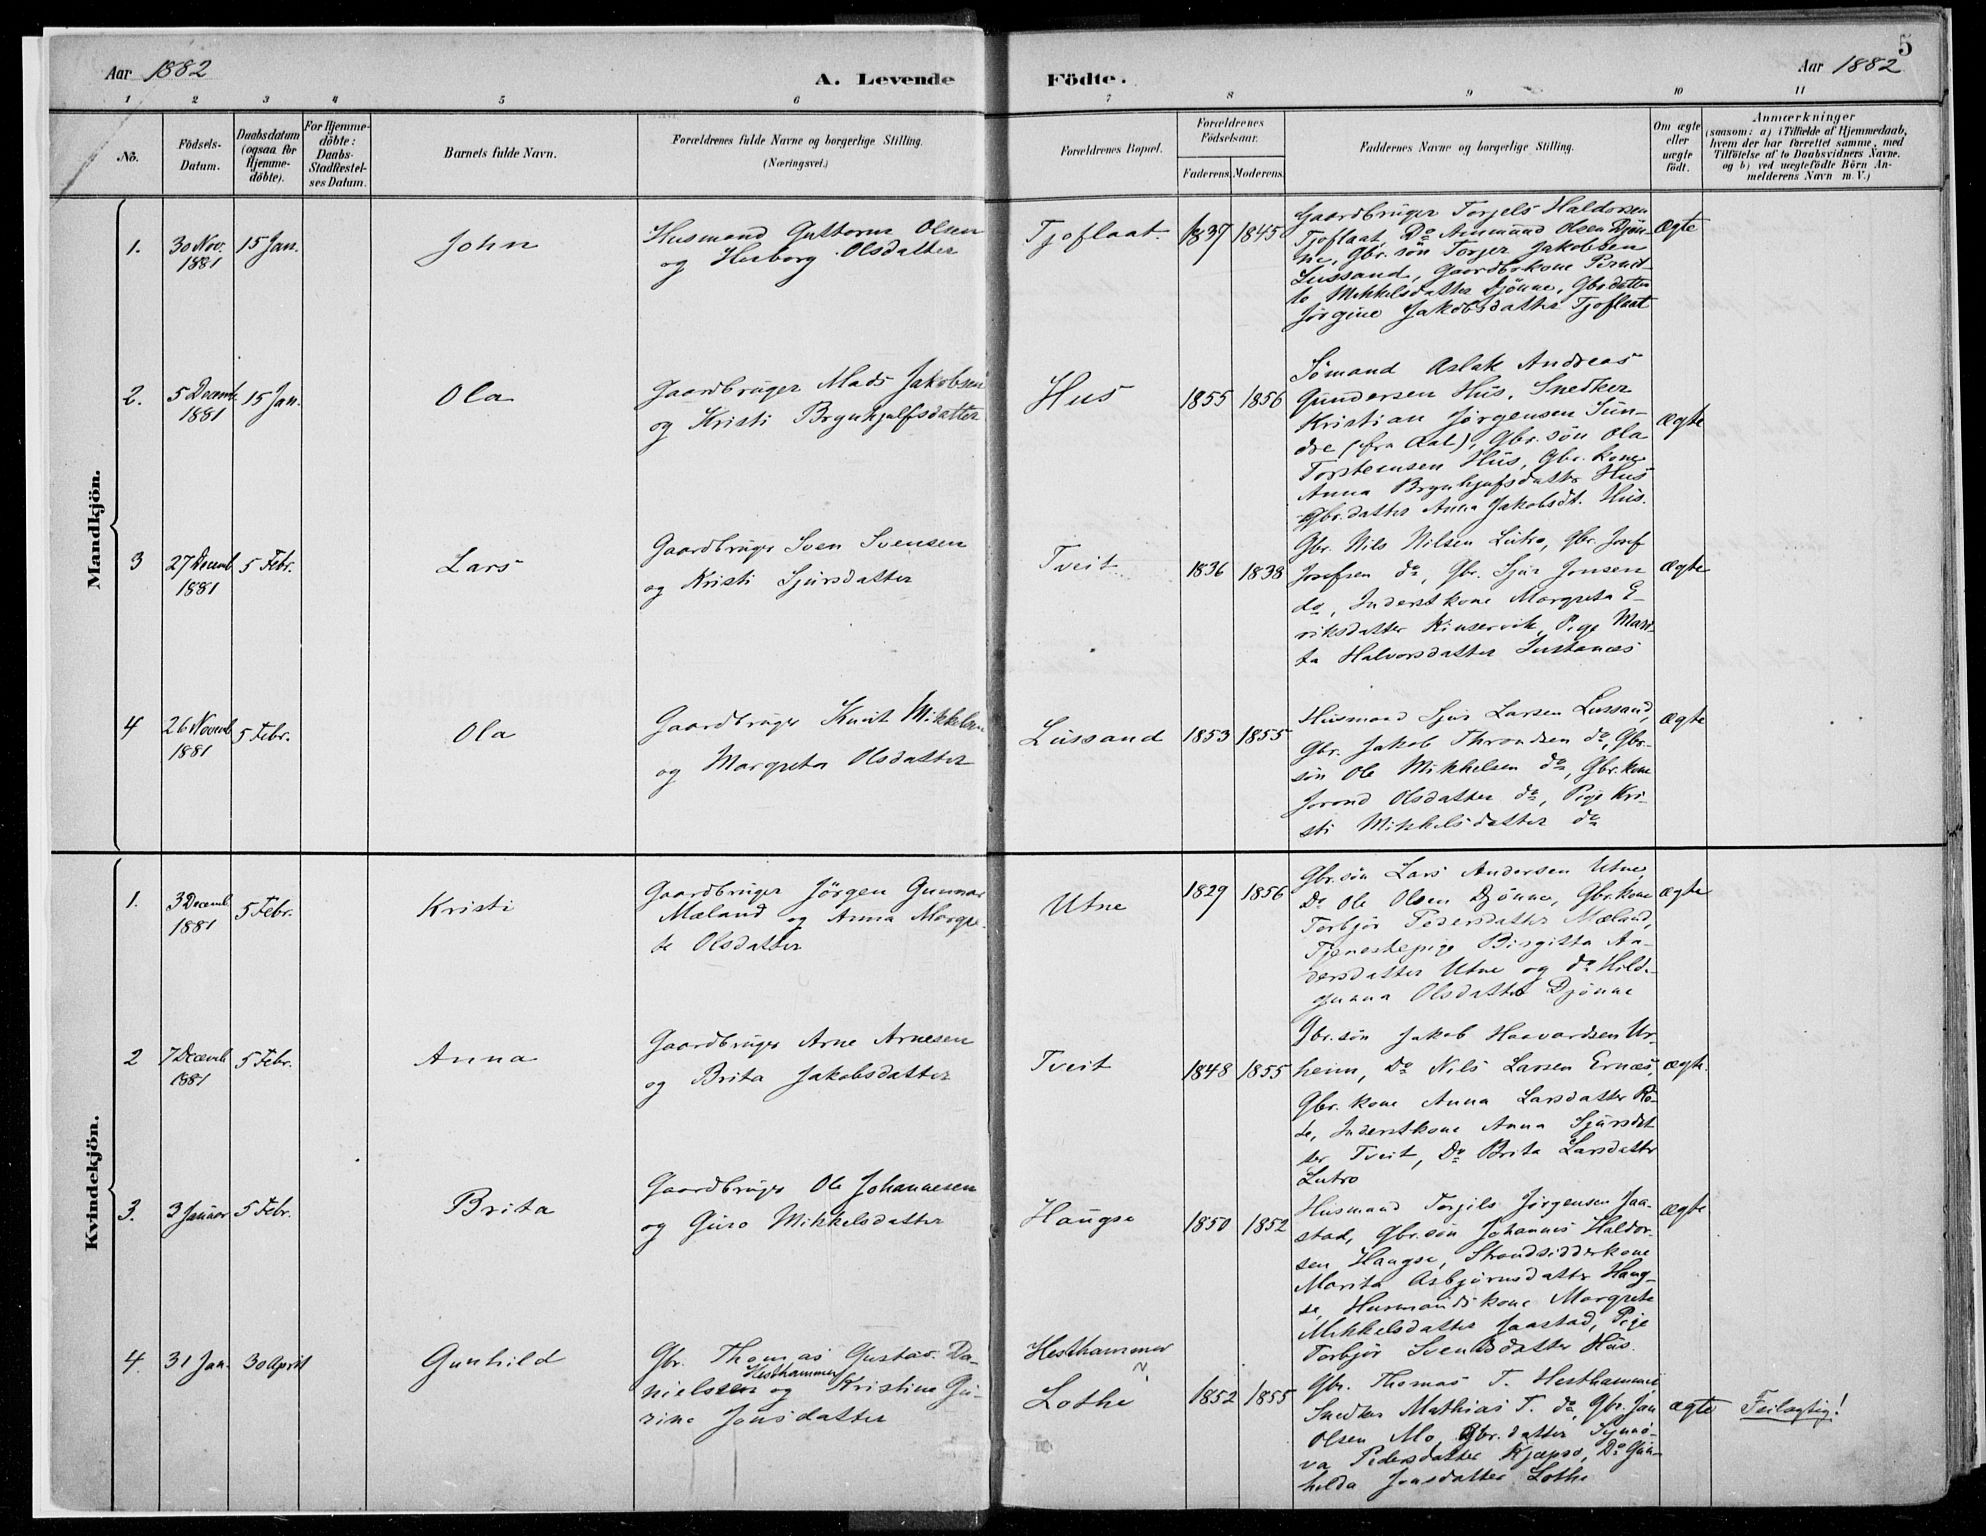 Aar 1882
A. Levende Födte.
Aar 1882
5
1 2 3 4 5 6 7 8 9 10 11
No.
Födsels-
Datum.
Daabsdatum
(ogsaa for
Hjemme-
döbte).
For Hjemme-
döbte:
Daabs-
Stadfæstel-
ses Datum.
Barnets fulde Navn.
Forældrenes fulde Navne og borgerlige Stilling.
(Næringsvei.)
Forældrenes Bopæl.
Forældrenes
Födselsaar.
Faderens. Moderens.
Faddernes Navne og borgerlige Stilling.
Om ægte
eller
uægte
født.
Anmærkninger
(saasom: a) i Tilfælde af Hjemmedaab,
hvem der har forrettet samme, med
Tilføielse af to Daabsvidners Navne,
og b) ved uægtefödte Börn An-
melderens Navn m. V.)
Mandkjön.
1.
30 Nov.
1881
15 Jan.
John
Husmand Guttorm Olsen
og Herborg Olsdatter
Tjoflaat.
1837
1845
Gaardbruger Torjels Haldorsen
Tjoflaat, Do Aamund Olsen Djön-
ne, Gbr. søn Torger Jakobsen
Lussand, Gaardbr.kone Brit-
to Mikkelsdatter Djönne, Gbr.datter
Jørgine Jakobsdatter Tjoflaat
Ægte
2.
5 Decemb.
1881
15 Jan.
Ola
Gaardbruger Mads Jakobsen
og Kristi Brynhjulfsdatter
Hus
1855
1856
Sömand Aslak Andreas
Gundersen Hus, Snedker
Kristian Jørgensen Sun-
dre (fra Aal), Gbr. søn Ola
Torsteinsen Hus, Gbr. kone
Anna Brynhjulfsdatter Hus
Gbr.datter Anna Jakobsdt. Hus.
Ægte
3
27 Decemb
1881
5 Febr.
Lars
Gaardbruger Sven Svensen
og Kristi Sjursdatter
Tveit
1836
1838
Gbr. Nils Nilsen Lutro, Gbr. Josef
Josefsen do, Gbr. Sjur Jonsen
do, Inderstkone Margreta E-
riksdatter Kinservik, Pige Mari-
ta Halvorsdatter
Ægte
4
26 Novemb
1881
5 Febr.
Ola
Gaardbruger Knut Mikkelsen
og Margreta Olsdatter
Lussand
1853
1855
Husmand Sjur Larsen Lussand,
Gbr. Jakob Throndsen do, Gbr.
søn Ole Mikkelsen do, Gbr. kone
Jorond Olsdatter do, Pige Kri-
sti Mikkelsdatter do
Ægte
Kvindekjön.
1.
3 Decemb.
1881
5 Febr.
Kristi
Gaardbruger Jörgen Gunnar
Mæland og Anna Margre-
te Olsdatter
Utne
1829
1856
Gbr.søn Lars Andersen Utne,
Do Ole Olsen Djönne, Gbr.kone
Torbjør Pedersdatter Mæland,
Tjenestepige Birgitta An-
dersdatter Utne og do Hild-
gunna Olsdatter Djönne
Ægte
2
7 Decemb
1881
5 Febr.
Anna
Gaardbruger Arne Arnesen
og Brita Jakobsdatter
Tveit
1848
1855
Gbr.søn Jakob Haavardsen Ur-
heim, Do Nils Larsen Ernæs,
Gbr. kone Anna Larsdatter Ro-
te, Inderstkone Anna Sjursdat
ter Tveit, Do Brita Larsdatter
Lutro
ægte.
3.
3 Januar
5 Febr.
Brita
Gaardbruger Ole Johannesen
og Guro Mikkelsdatter
Haugse
1850
1852
Husmand Torgils Jørgensen Jaa-
stad, Gbr.søn Johannis Haldor-
sen Haugse, Strandsidderkone
Marita Asbjørnsdatter Haug-
se, Husmandskone Margrete
Mikkelsdatter Jaastad, Pige
Torbjør Svensdatter Hus.
Ægte
4.
31 Jan.
30 April
Gunhild
Gbr. Thomas Gustav Da-
Hesthammer
nielssen og Kristina Gu-
rine Jonsdatter
Hesthammer
Lothe
1852
1855
Gbr. Thomas T. Hesthammer,
Snedker Mathias T. do, Gbr. Jan
Olsen Mo, Gbr. datter Synnö-
va Pedersdatter Kjæpso, Do Gun-
hilda Jonsdatter Lothe
ægte
Feilagtig!